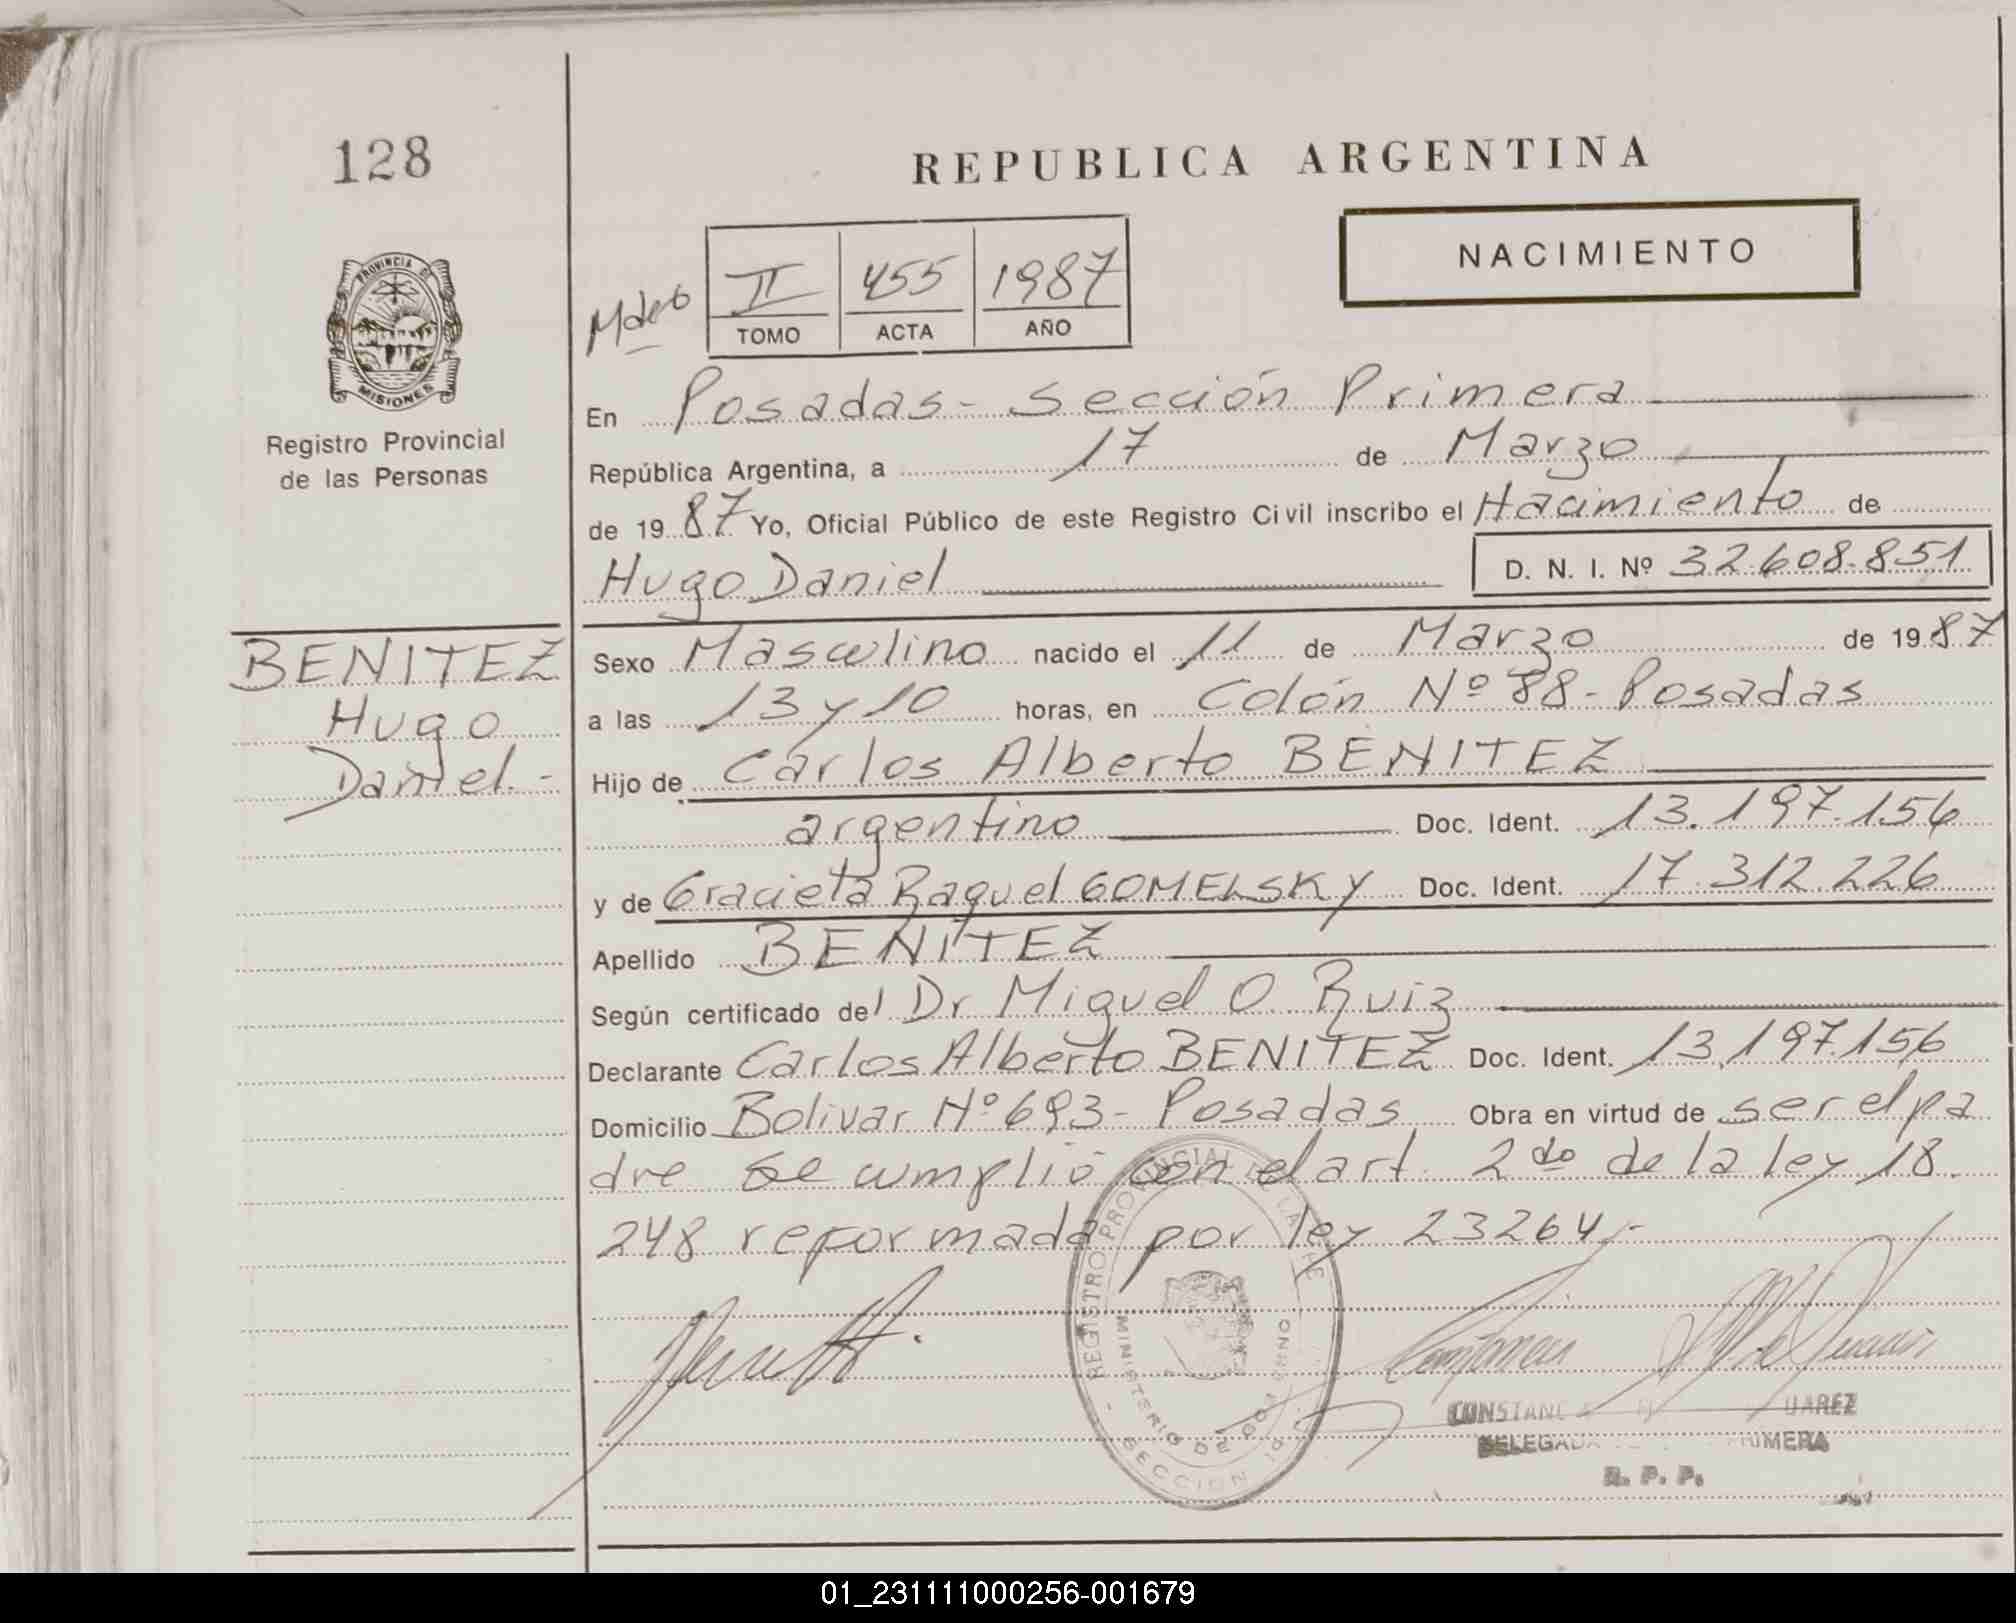 128
REPUBLICA ARGENTINA
NACIMIENTO
II 455 1987
TOMO ACTA AÑO
PROVINCIA DE MISIONES
Registro Provincial
de las Personas
En Posadas - Sección Primera
República Argentina, a 17 de Marzo
de 1987 Yo, Oficial Público de este Registro Civil inscribo el Nacimiento de
Hugo Daniel D. N. I. Nº 32.608.851
BENITEZ
Hugo
Daniel.-
Sexo Masculino nacido el 11 de Marzo de 1987
a las 13 y 10 horas, en Colón Nº 88 - Posadas
Hijo de Carlos Alberto BENITEZ
argentino Doc. Ident. 13.197.156
y de Gracieta Raquel GOMELSKY Doc. Ident. 17.312.226
Apellido BENITEZ
Según certificado del Dr Miguel O. Ruiz
Declarante Carlos Alberto BENITEZ Doc. Ident. 13.197.156
Domicilio Bolivar Nº 693 - Posadas Obra en virtud de ser el pa
dre Se cumplió con el art. 2do de la ley 18.
248 reformada por ley 23264.-
REGISTRO PROVINCIAL DE LAS
MINISTERIO DE GOBIERNO
SECCION
R. P. P.
01_231111000256-001679